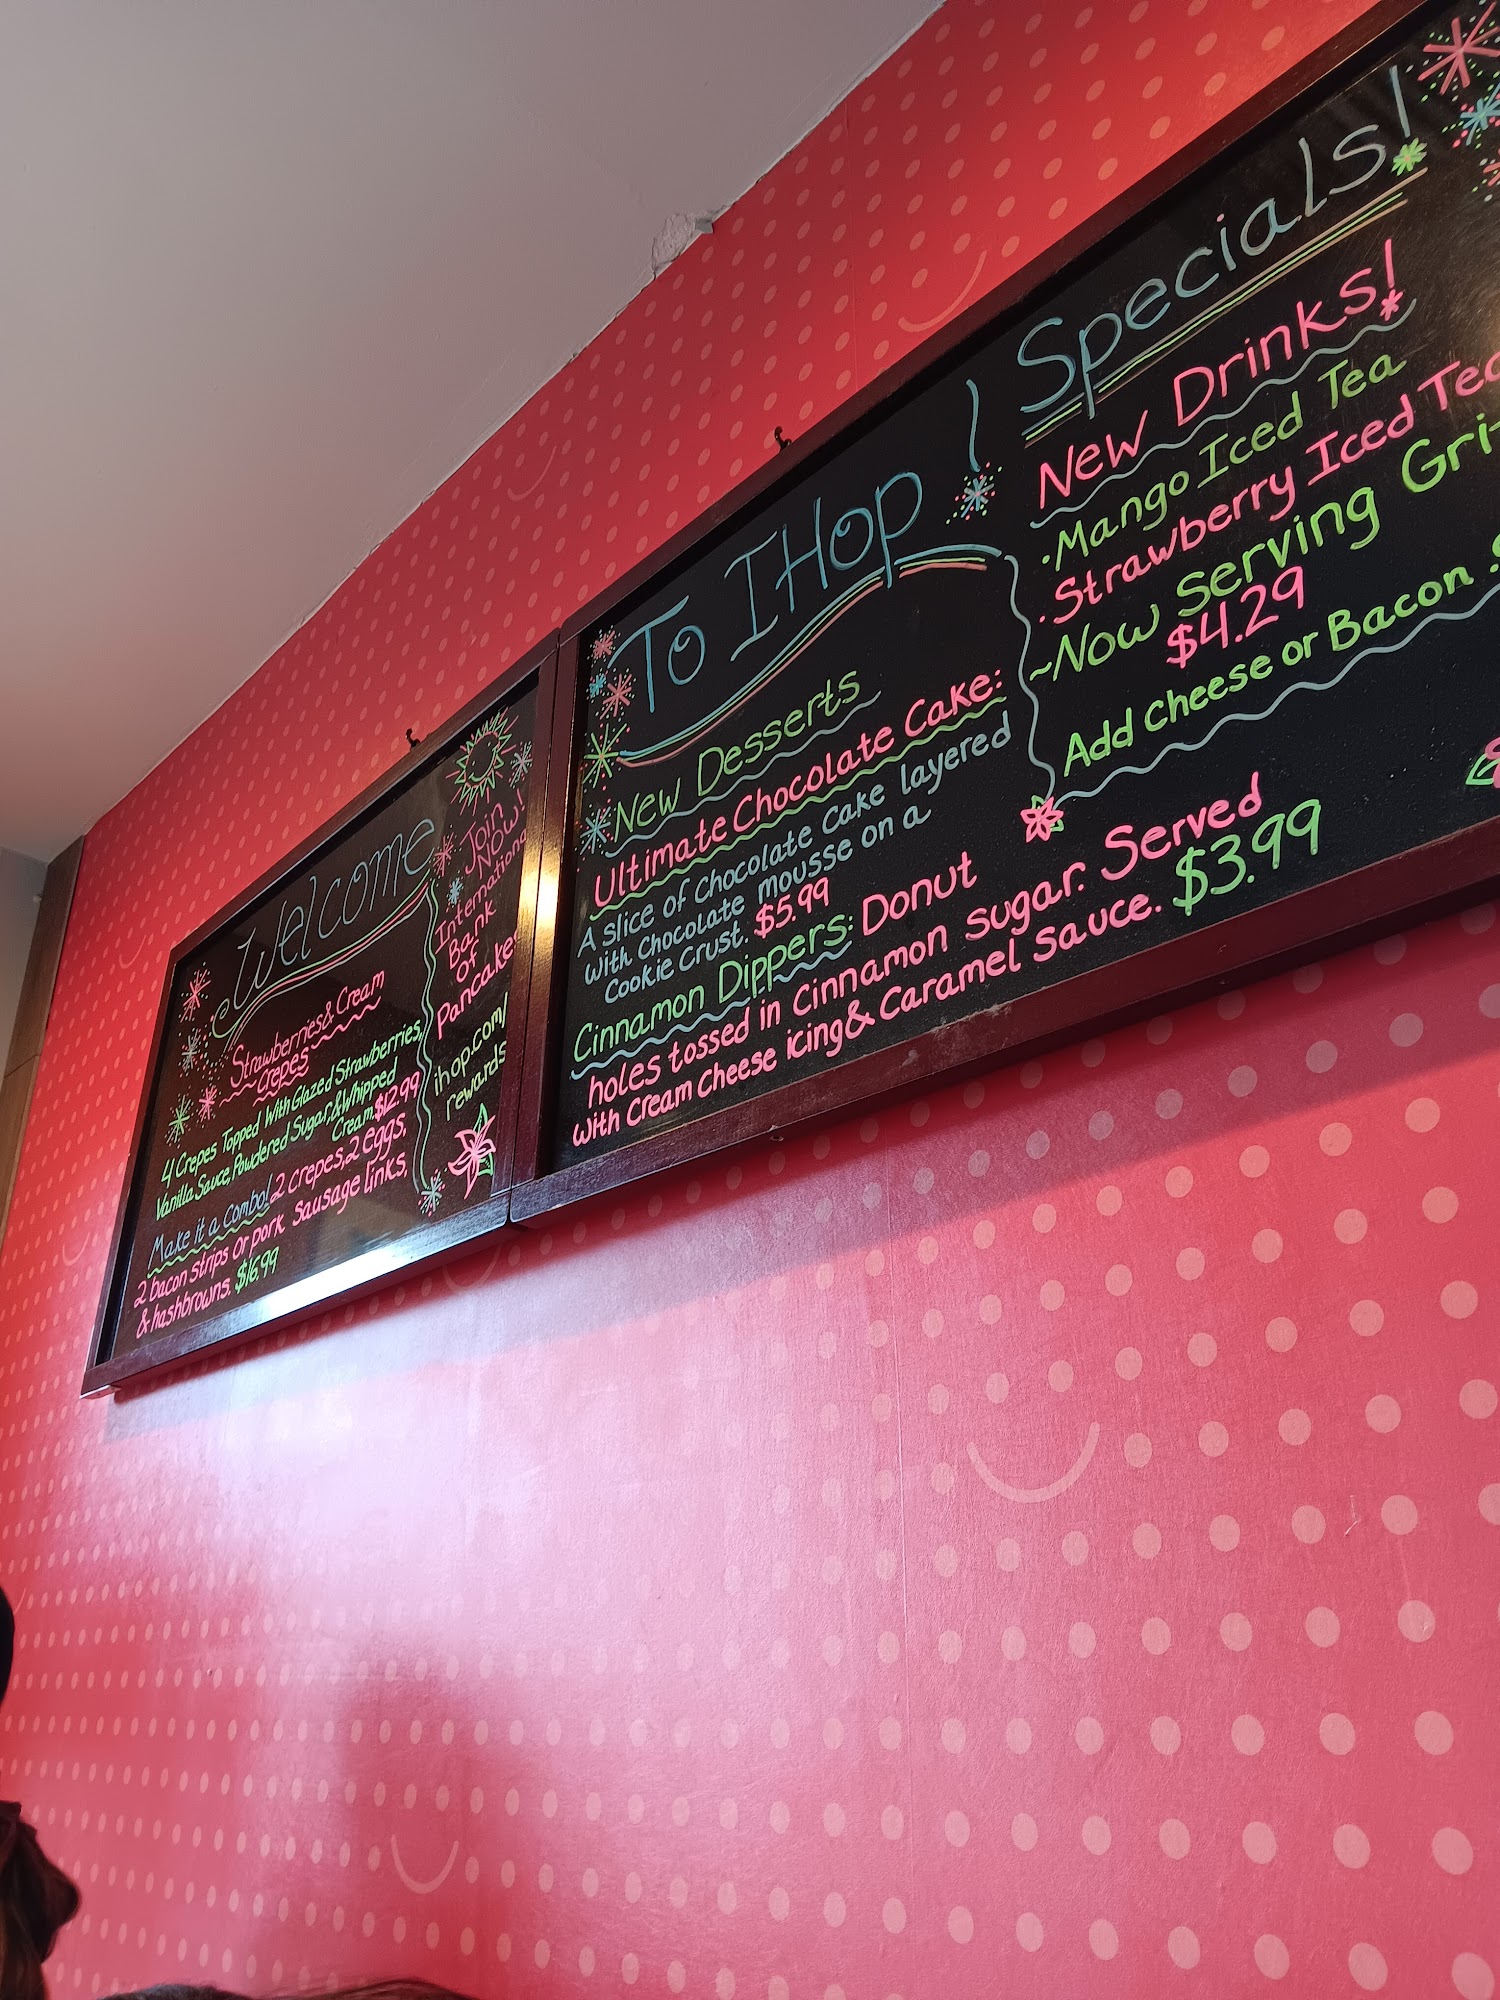 Welcome
Strawberries & Cream
Crepes
4 Crepes Topped With Glazed Strawberries,
Vanilla Sauce, Powdered Sugar, & Whipped
Cream. $12.99
Make it a Combo! 2 crepes, 2 eggs,
2 bacon strips or pork sausage links,
& hashbrowns. $16.99
Join
NOW!
International
Bank
of
Pancakes
ihop.com/
rewards
To IHop!
New Desserts
Ultimate Chocolate Cake:
A slice of chocolate cake layered
with chocolate mousse on a
cookie crust. $5.99
Cinnamon Dippers: Donut
holes tossed in cinnamon sugar. Served
with cream cheese icing & caramel sauce. $3.99
Specials!
New Drinks!
· Mango Iced Tea
· Strawberry Iced Tea
~Now Serving
$4.29
Add cheese or Bacon